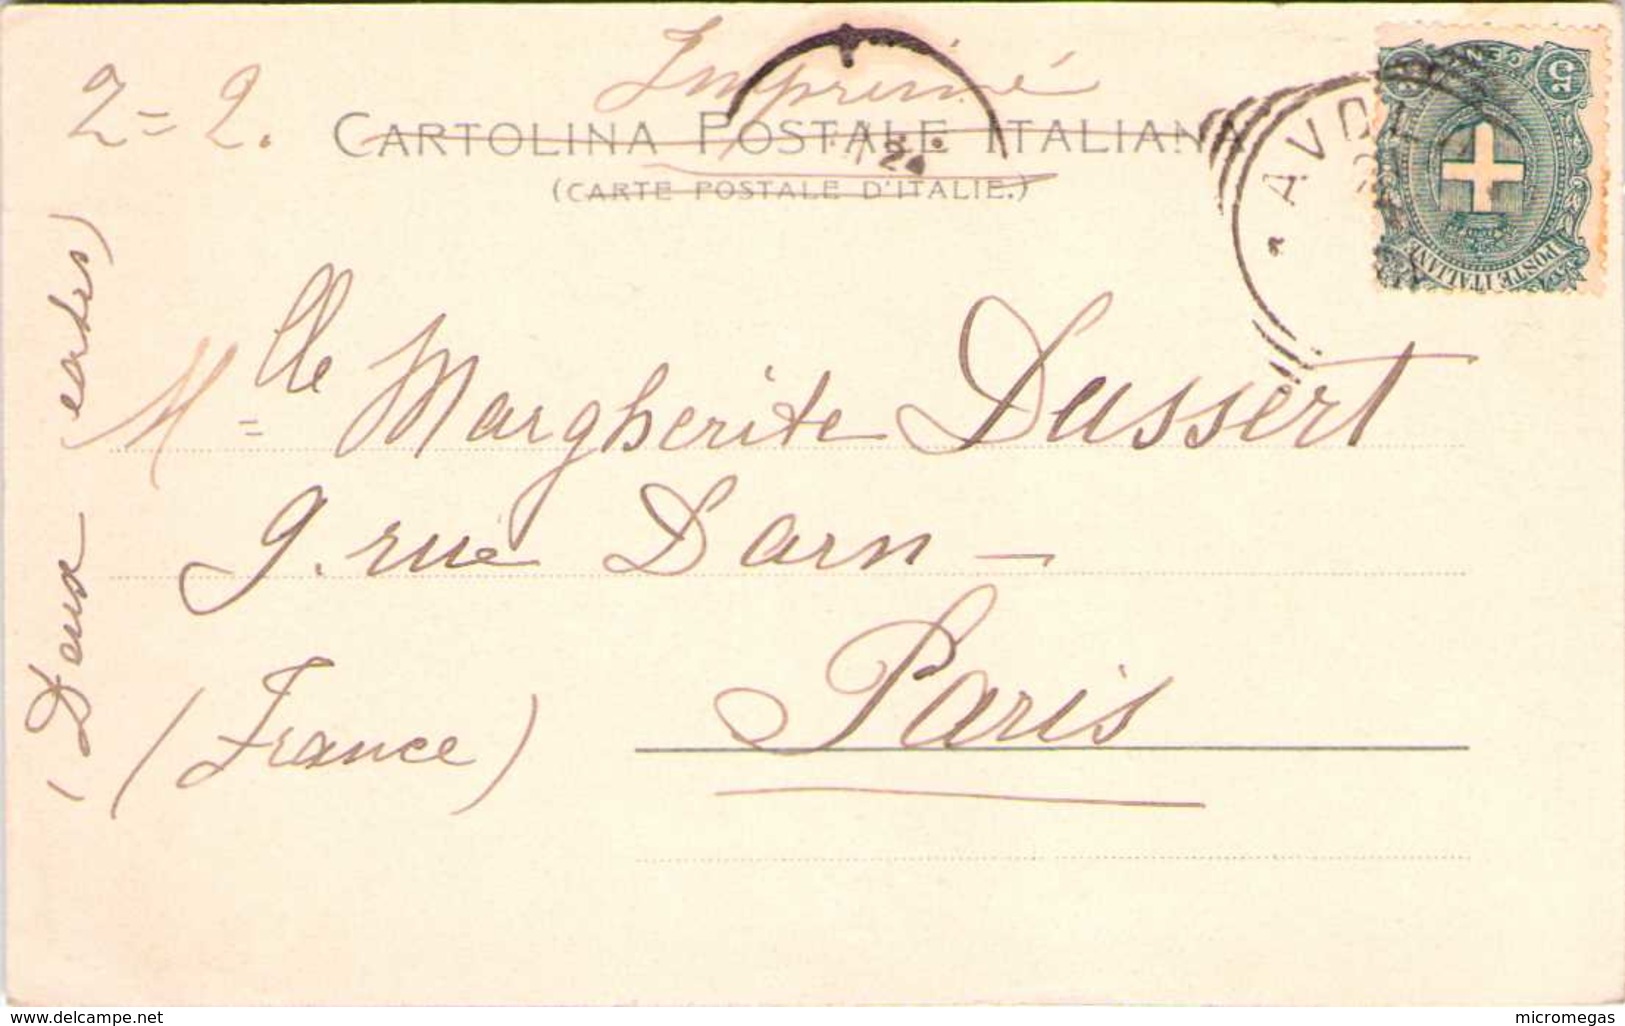 Imprimé
2=2.
CARTOLINA POSTALE ITALIANA
(CARTE POSTALE D'ITALIE.)
AVOL
5 CEN 5
POSTE ITALIANE
Mlle Margherite Dussert
9. rue Darn -
Paris
(France)
(Deux cartes)
www.delcampe.net
micromegas